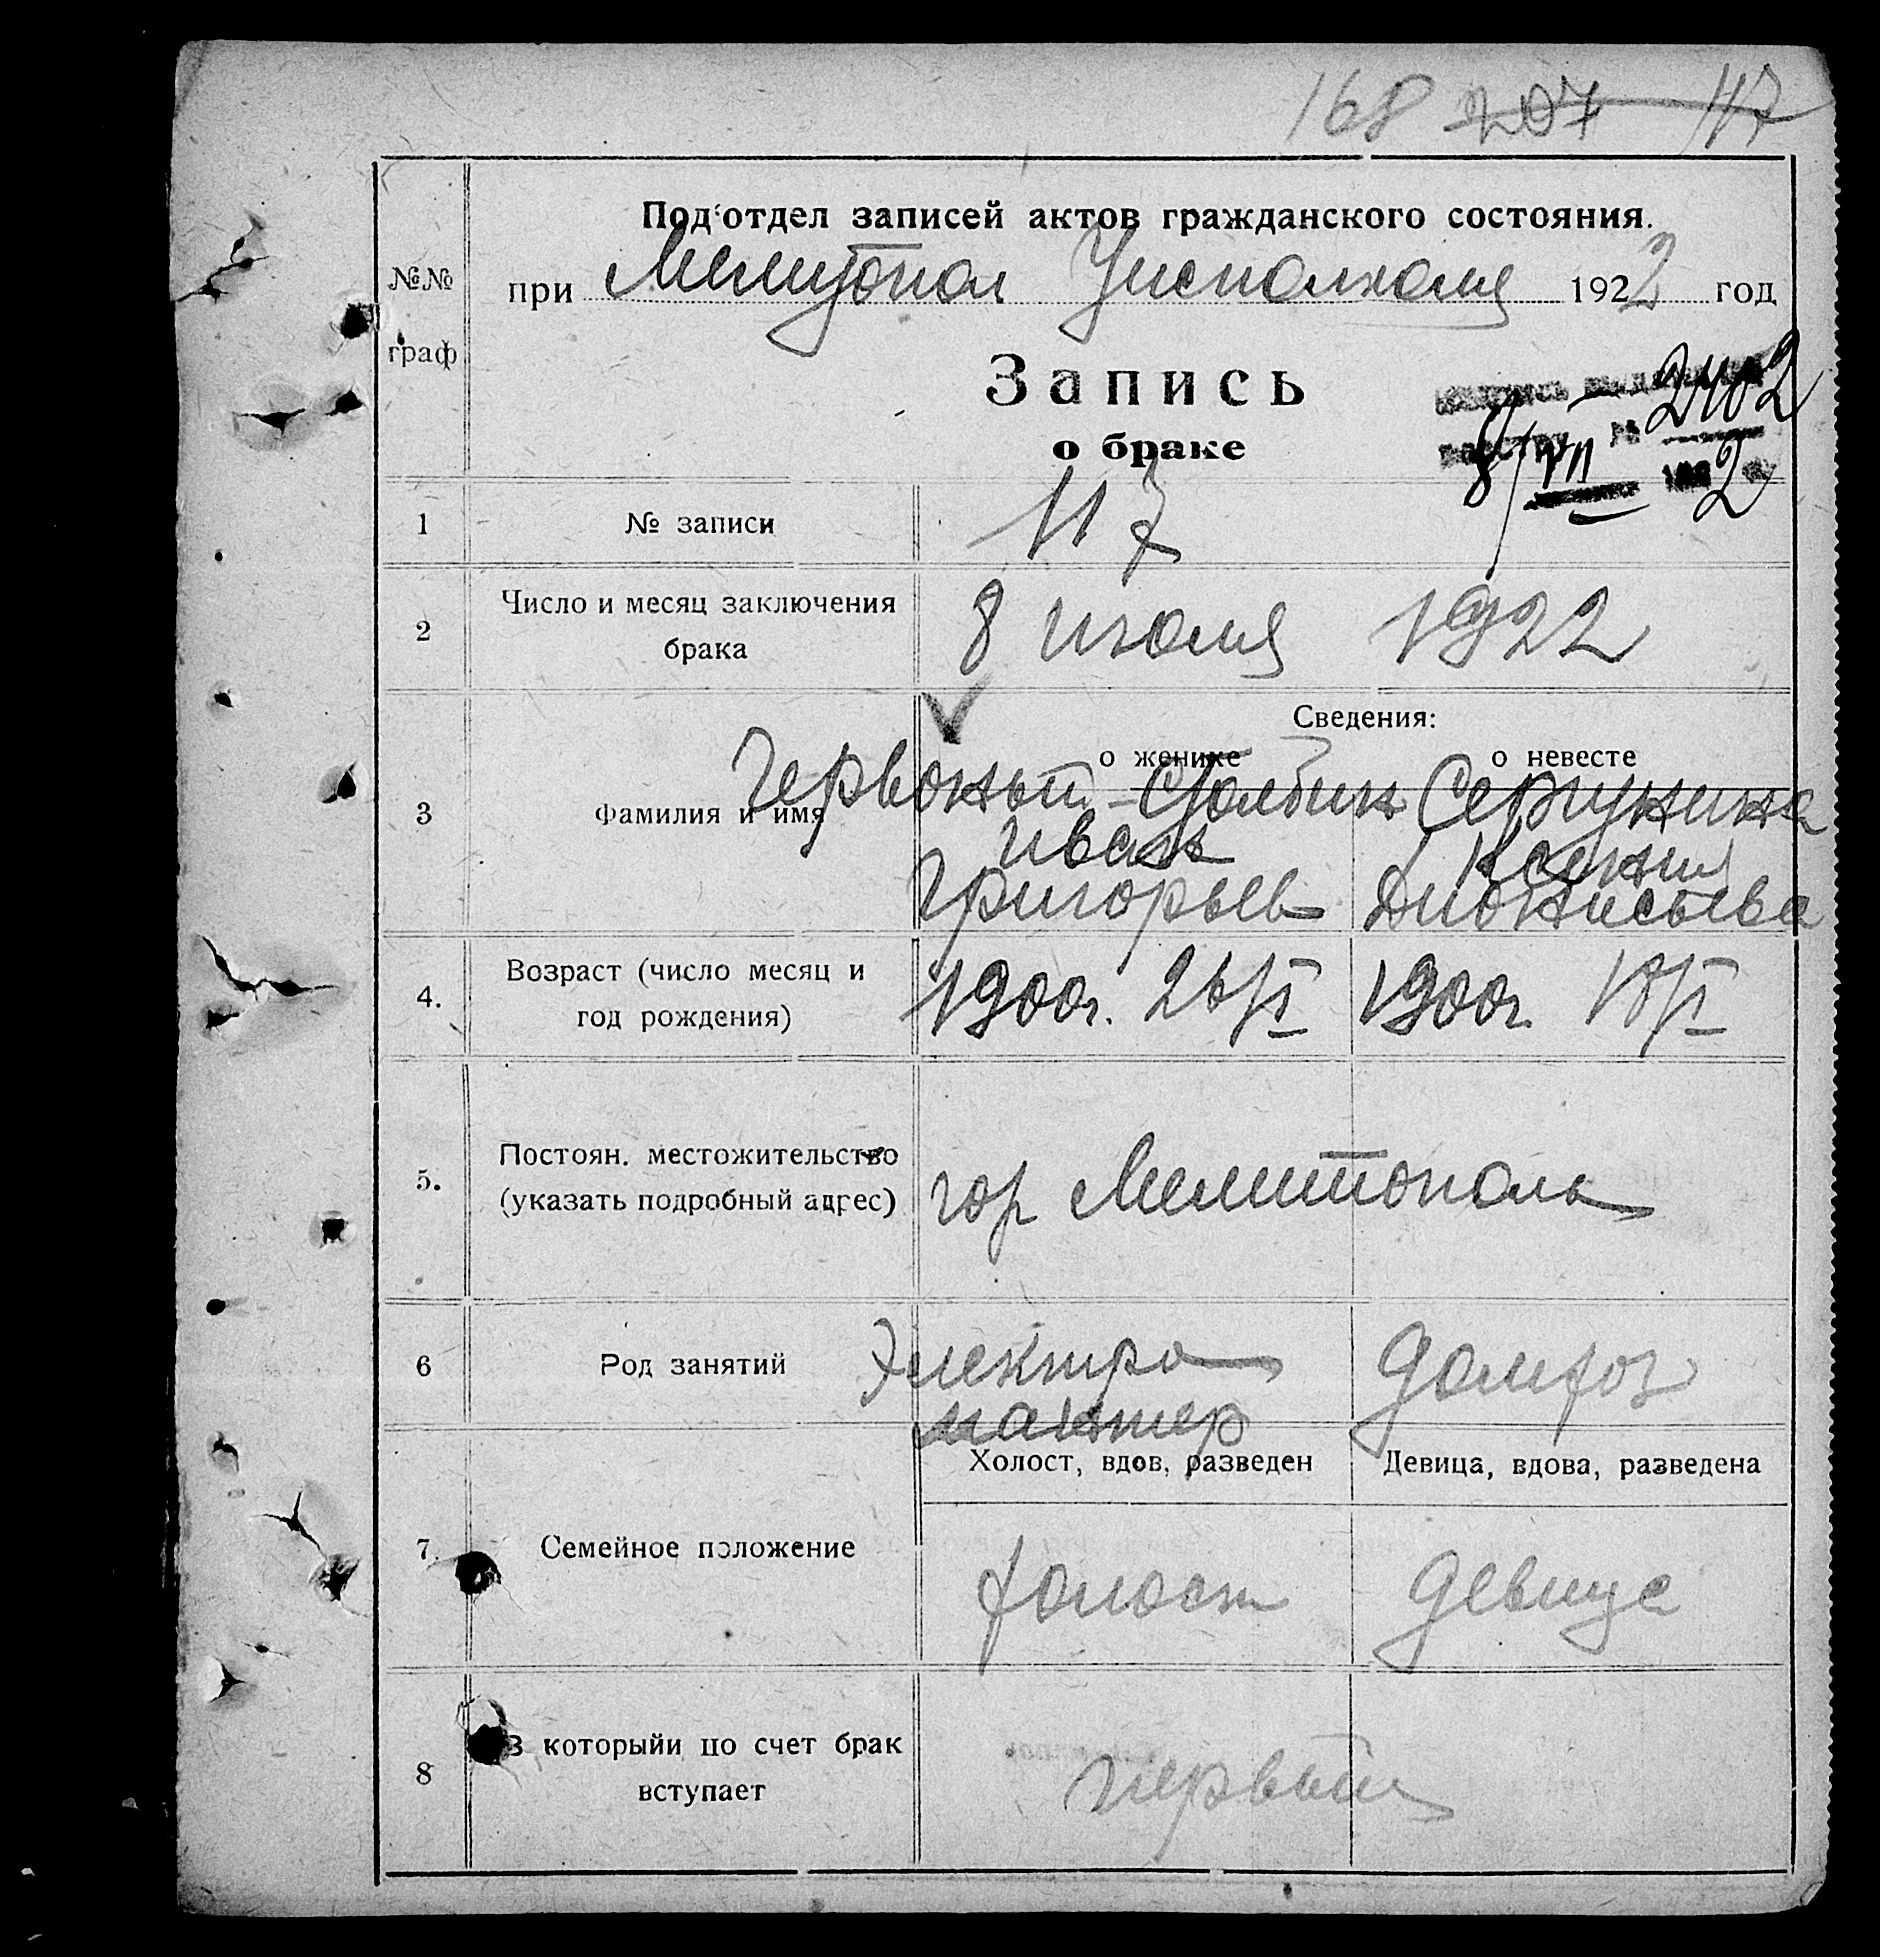 168 207 117
Подотдел записей актов гражданского состояния.
№№
граф
при Мелитопол Уисполкома 1922 год
Запись
о браке
2402
8/VII 1922
1 № записи 117
2 Число и месяц заключения
брака
8 июля 1922
Сведения:
о женихе о невесте
3 Фамилия и имя
Червоный-Столбин Сергунина
Иван Ксения
Григорьев Дионисьева
4. Возраст (число месяц и
год рождения)
1900г. 26/VI 1900г. 18/VI
5. Постоян. местожительство
(указать подробный адрес)
гор Мелитополь
6 Род занятий
Электро
монтер
домхоз
Холост, вдов, разведен Девица, вдова, разведена
7. Семейное положение
холост девица
8 В которыйи по счет брак
вступает
первый